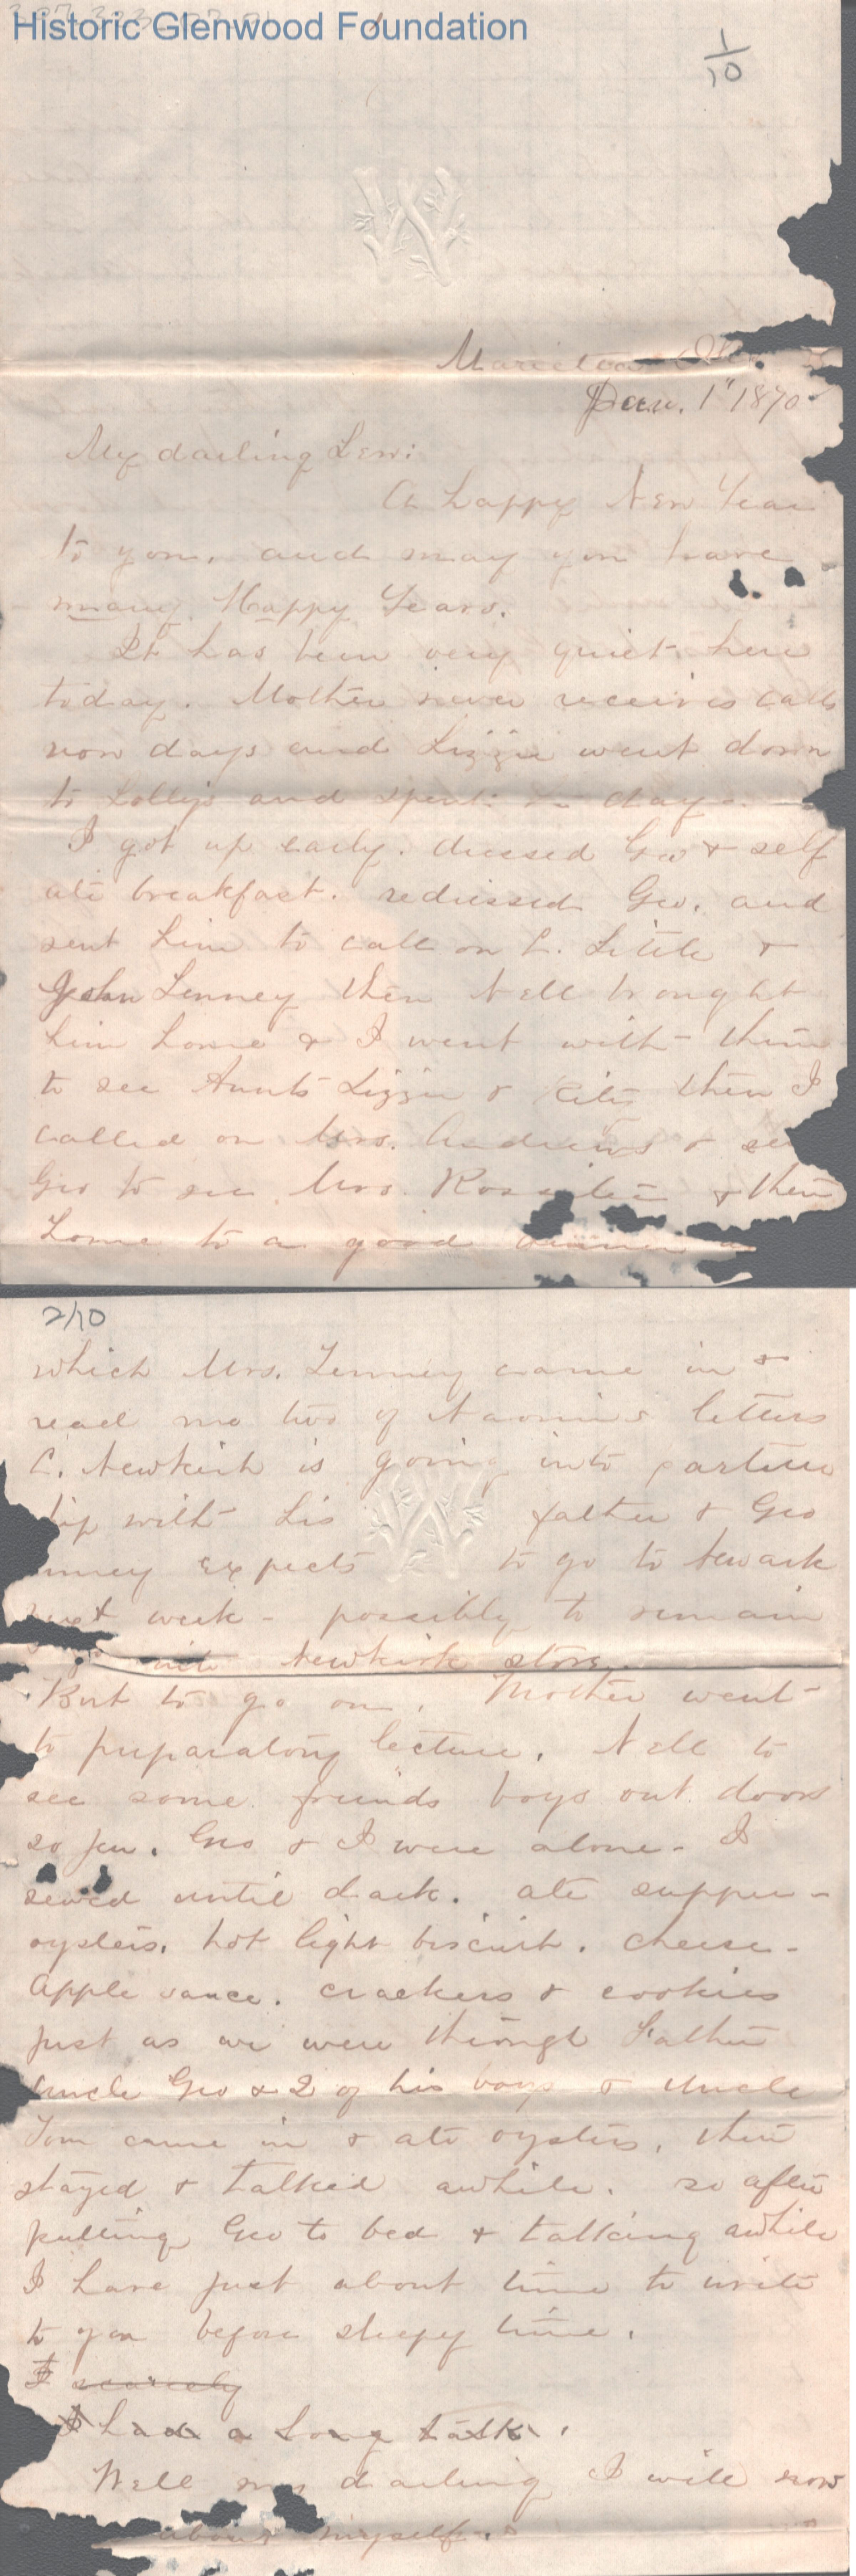 Historic Glenwood Foundation
1/10
W
Marietta
Jan. 1" 1870
My darling Lew:
A happy New Year
to you, and may you have
many Happy Years.
It has been very quiet here
today. Mother never receives calls
now days and Lizzie went down
to Lollys and spent day.
I got up early. dressed Geo & self
ate breakfast. redressed Geo. and
sent him to call on C. Little &
John Tenney then Nell brought
him home & I went with them
to see Aunts Lizzie & Kite then I
called on Mrs. Andrews &
Geo to see Mrs. & then
home to a good
2/10
which Mrs. Tenney came in &
read me two of Naomi's letters
C. Newkirk is going into partner
hip with his father & Geo
nney expects to go to Newark
next week - possibly to remain
Newkirk store.
But to go on. Mother went
to preparatory lecture. Nell to
see some friends boys out doors
so Jen. Geo & I were alone - I
sewed until dark. ate supper -
oysters. hot light biscuit. cheese -
apple sauce. crackers & cookies
just as we were through Father
Uncle Geo & 2 of his boys & Uncle
Tom came in & ate oysters, then
stayed & talked awhile. so after
putting Geo to bed & talking awhile
I have just about time to write
to you before sleepy time.
I scarcely
I had a long talk.
Well my darling I will now
about myself.